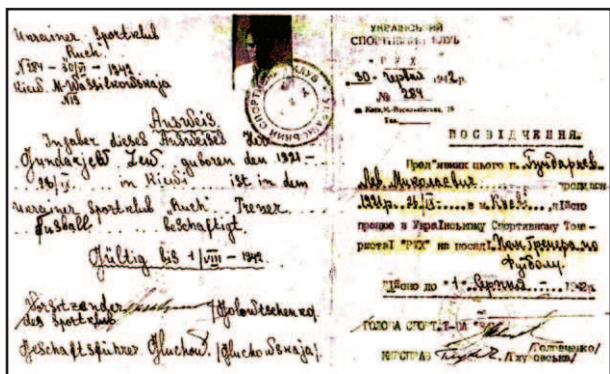 Ukreiner Sportklub
"Ruch"
N 284 – 30/VI – 1942
Kiew M-Wassilkowskaja
N 15
Ausweis
Ingaber dieses Ausweises Her
Gundarjeff Lew, geboren den 1921 –
in Kiew ist in dem
Ukreiner Sportklub "Ruch" Trener
Fussball beschäftigt.
Gültig bis 1/VIII – 1942.
Vorsitzender /Golowtschenko/
des Sportklub
Geschäftsführer Gluchow. /Gluchowskaja/.
УКРАЇНСЬКИЙ
СПОРТИВНИЙ КЛУБ
"РУХ"
30 – Червня 1942 р.
№ 284
м. Київ, М-Васильківська, 15
Тел.
ПОСВІДЧЕННЯ.
Пред'явник цього п. Гундарєв
Лев Миколаєвич родився
1921 р. в м. Києві дійсно
працює в Українському Спортивному Това-
ристві "РУХ" на посаді Кон. Тренера по
футболу.
Дійсно до "1" Серпня 1942 р.
ГОЛОВА СПОРТ. Т-ВА /Головченко/
КЕРСПРАВ /Глуховська/